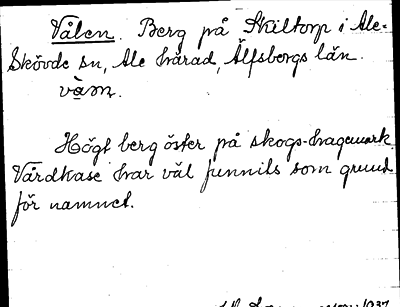 Vålen. Berg på Skiltorp i Ale-
Skövde sn, Ale härad, Älfsborgs län.
Högt berg öster på skogs-hagemark.
Vårdkase har väl funnits som grund
för namnet.
1937